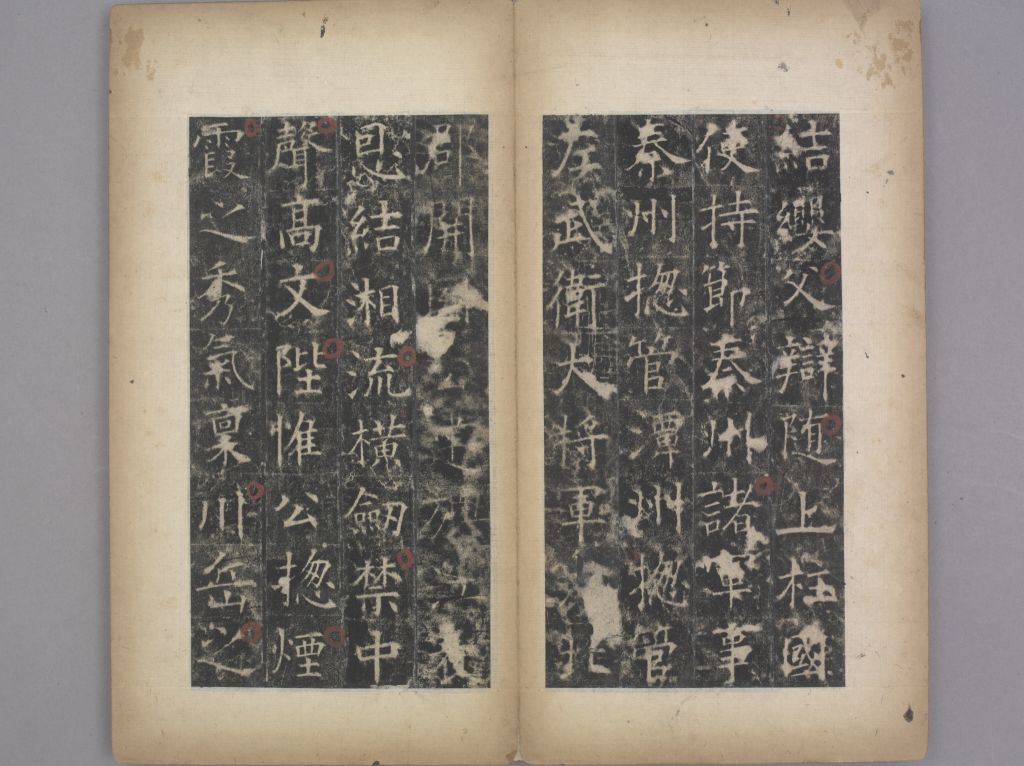 結纓父辯随上柱國
使持節秦州諸軍事
秦州揔管潭州揔管
左武衛大將軍北
郡開
恩結湘流横劒禁中
聲高文陛惟公揔煙
霞之秀氣稟川岳之